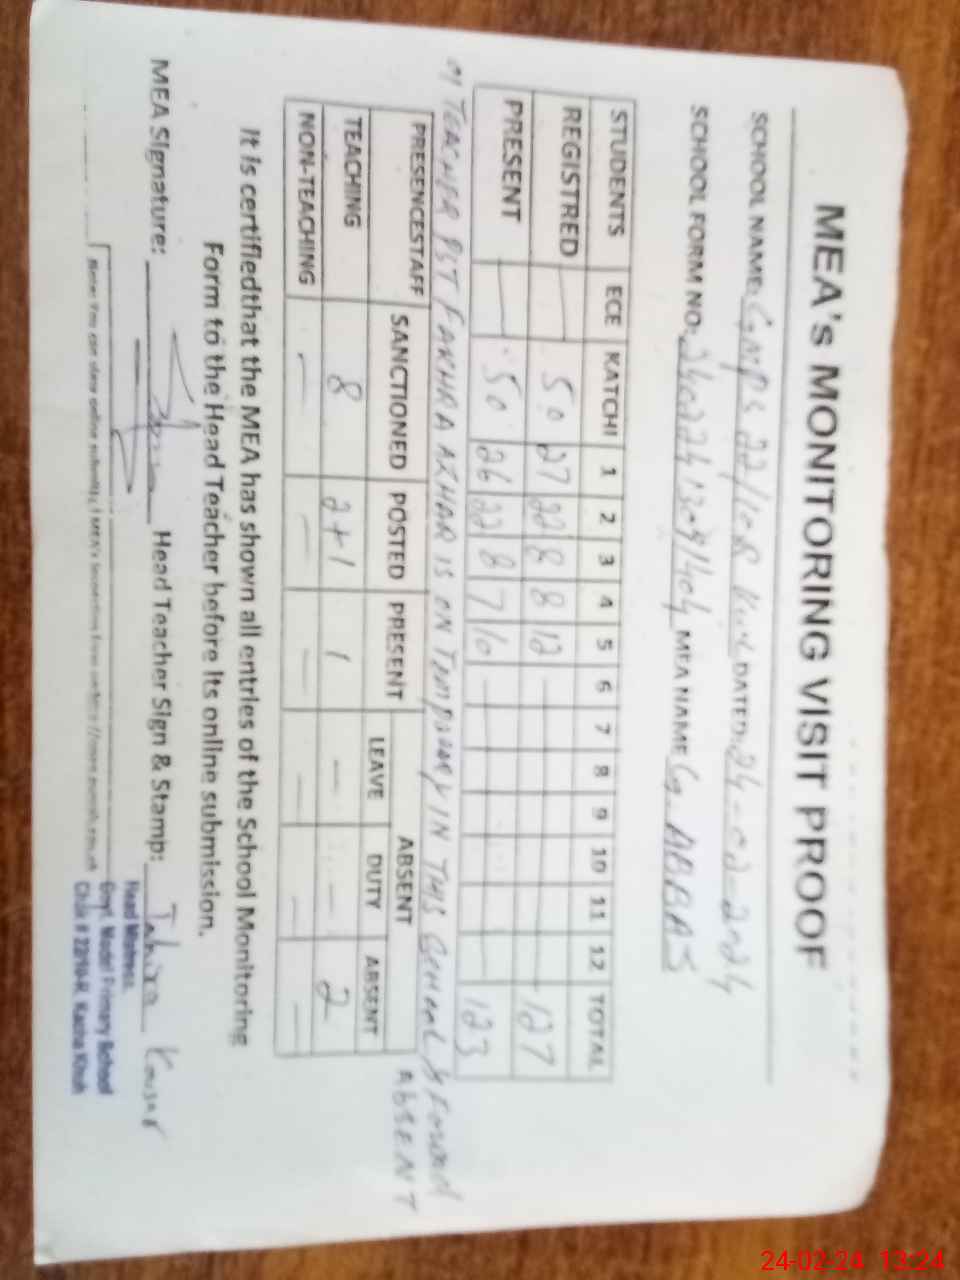 MEA's MONITORING VISIT PROOF
SCHOOL NAME: GMPS 22/10R DATED: 24-02-2024
SCHOOL FORM NO: MEA NAME G. ABBAS
STUDENTS ECE KATCHI 1 2 3 4 5 6 7 8 9 10 11 12 TOTAL
REGISTRED — 50 27 22 8 8 12 — 127
PRESENT — 50 26 22 8 7 10 — 123
TEACHER PST FAKHRA AZHAR IS ON Temporary IN THIS School & Found ABSENT
PRESENCESTAFF SANCTIONED POSTED PRESENT ABSENT
LEAVE DUTY ABSENT
TEACHING 8 2+1 1 — — 2
NON-TEACHING — — — — — —
It is certifiedthat the MEA has shown all entries of the School Monitoring
Form to the Head Teacher before its online submission.
MEA Signature: Head Teacher Sign & Stamp: Tahira Kousar
Head Mistress
Govt. Model Primary School
Chak # 22/10-R, Kacha Khuh
Note: You can view online
24-02-24 13:24